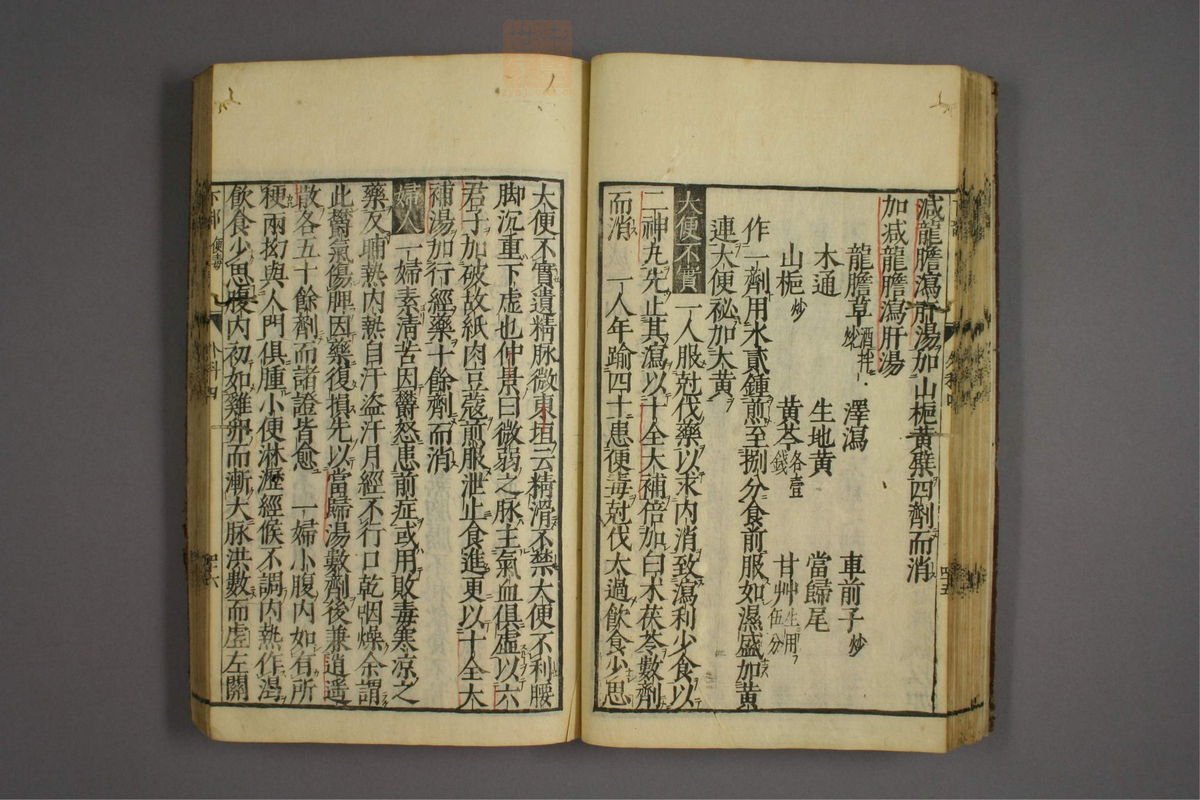 減龍膽瀉肝湯加山梔黃蘗四劑而消
加減龍膽瀉肝湯
龍膽草酒拌炒 澤瀉 車前子炒
木通 生地黃 當歸尾
山梔炒 黃芩各壹錢 甘艸生用伍分
作一劑用水貳鍾煎至捌分食前服如濕盛加黃
連大便祕加大黃
大便不實 一人服尅伐藥以求內消致瀉利少食以
二神丸先止其瀉以十全大補倍加白朮茯苓數劑
而消 一人年踰四十患便毒尅伐太過飲食少思
大便不實遺精脉微東垣云精滑不禁大便不利腰
脚沉重下虛也仲景曰微弱之脉主氣血俱虛以六
君子加破故紙肉豆蔻煎服泄止食進更以十全大
補湯加行經藥十餘劑而消
婦人 一婦素清苦因鬱怒患前症或用敗毒寒凉之
藥反晡熱內熱自汗盜汗月經不行口乾咽燥余謂
此鬱氣傷脾因藥復損先以當歸湯數劑後兼逍遥
散各五十餘劑而諸證皆愈 一婦小腹內如有所
梗兩拗與人門俱腫小便淋瀝經候不調內熱作渴
飲食少思腹內初如雞卵而漸大脉洪數而虛左關
下部 便毒
外科四
四十六
四十五